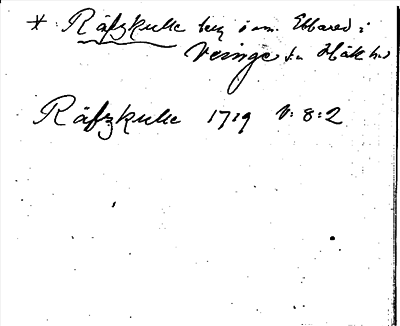 * Räfzkulle beg i om. Ebbared i
Veinge sn Halland
Räfzkulle 1719 V: 8:2